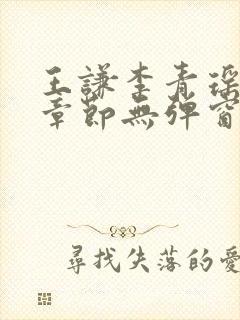 王謙李青瑶
章節無彈窗
尋找失落的愛